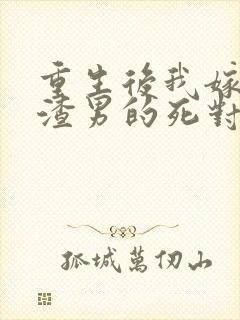 重生後我嫁
渣男的死對
孤城萬仞山